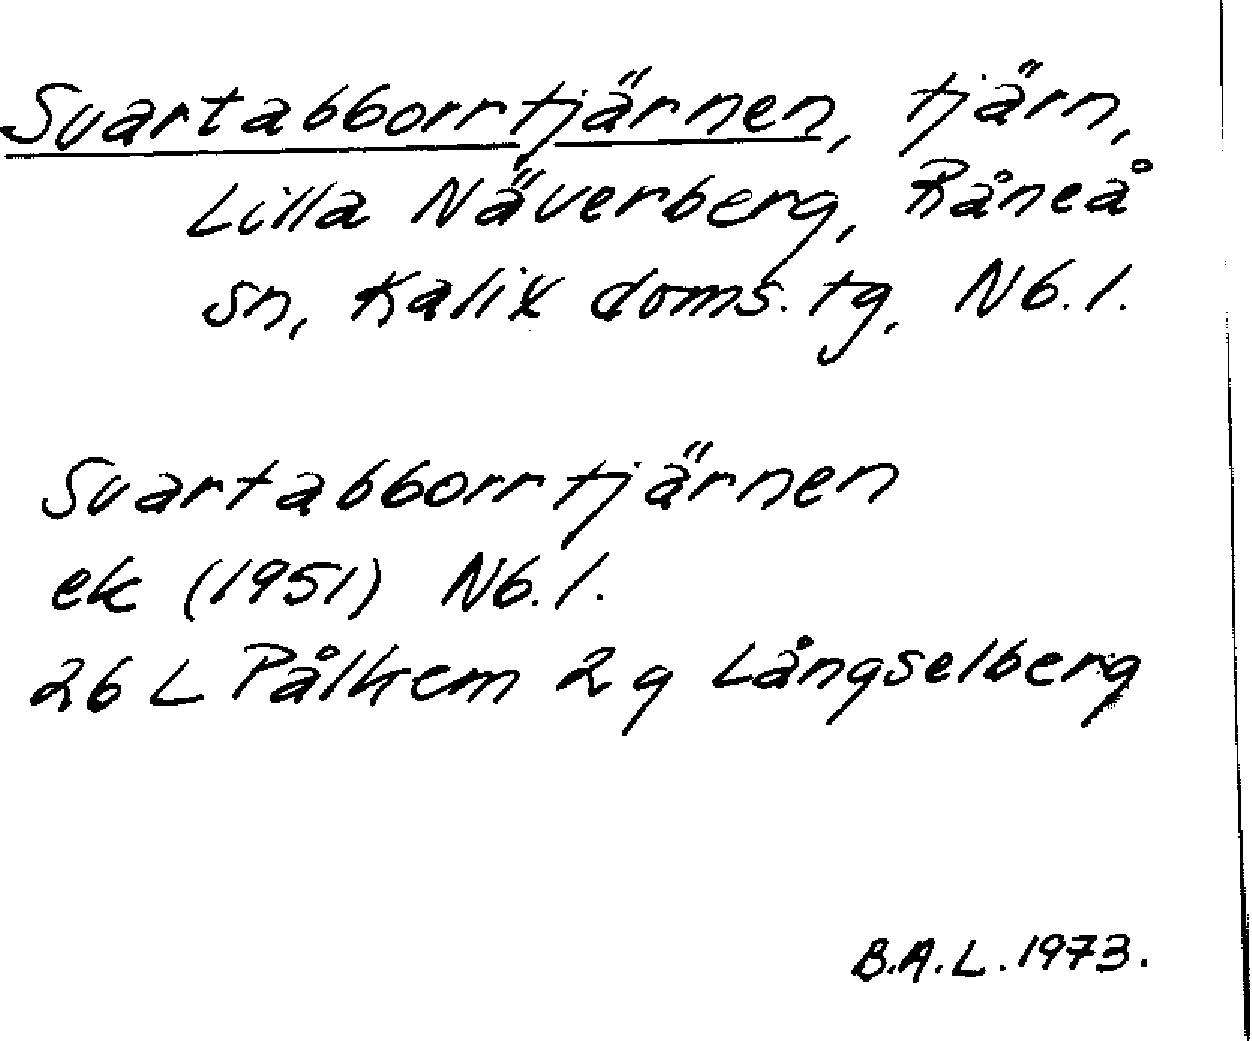 Svartabborrtjärnen, tjärn,
Lilla Näverberg, Råneå
sn, Kalix doms. tg, Nb. l.
Svartabborrtjärnen
ek (1951) Nb. l.
26 L Pålkem 2 g Långselberg
B.A.L. 1973.